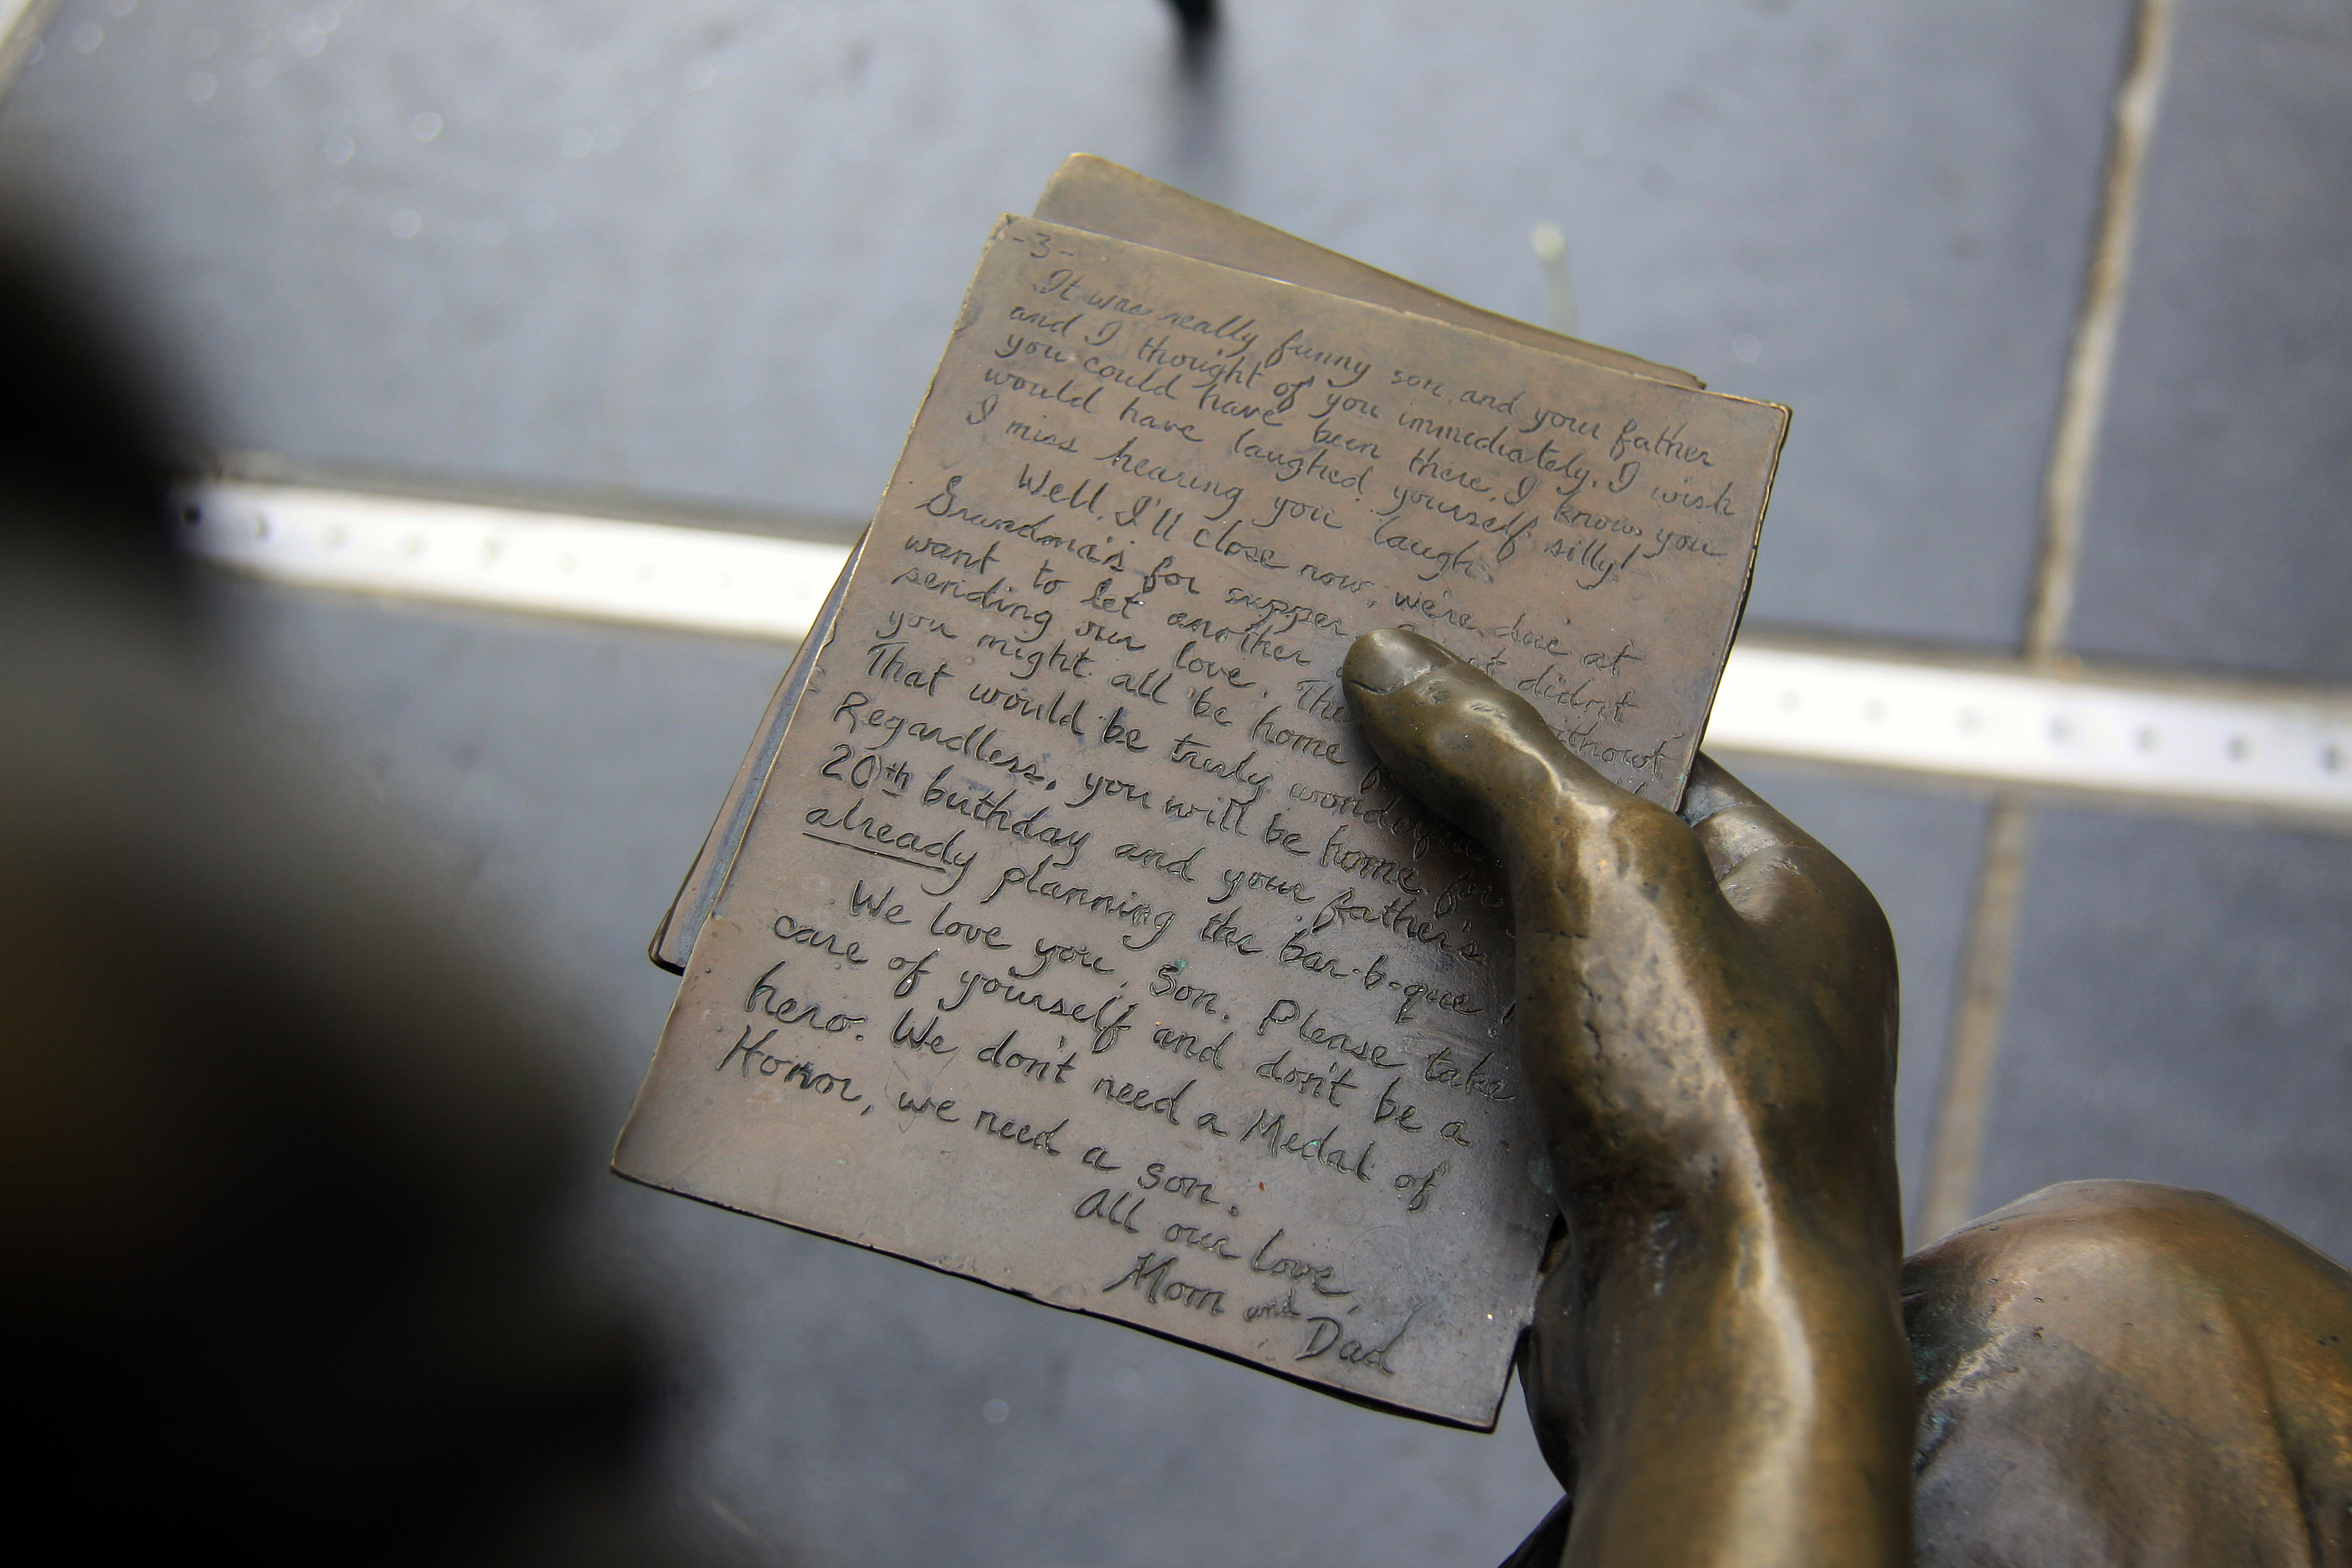 -3-
It was really funny son and your father
and I thought of you immediately. I wish
you could have been there. I know you
would have laughed yourself silly!
I miss hearing you laugh.
Well, I'll close now, we're due at
Grandma's for supper. didn't
want to let another without
sending our love.
you might all be home
That would be truly
Regardless, you will be home for
20th birthday and your father's
already planning the bar-b-que!
We love you, son. Please take
care of yourself and don't be a
hero. We don't need a Medal of
Honor, we need a son.
All our love,
Mom and
Dad